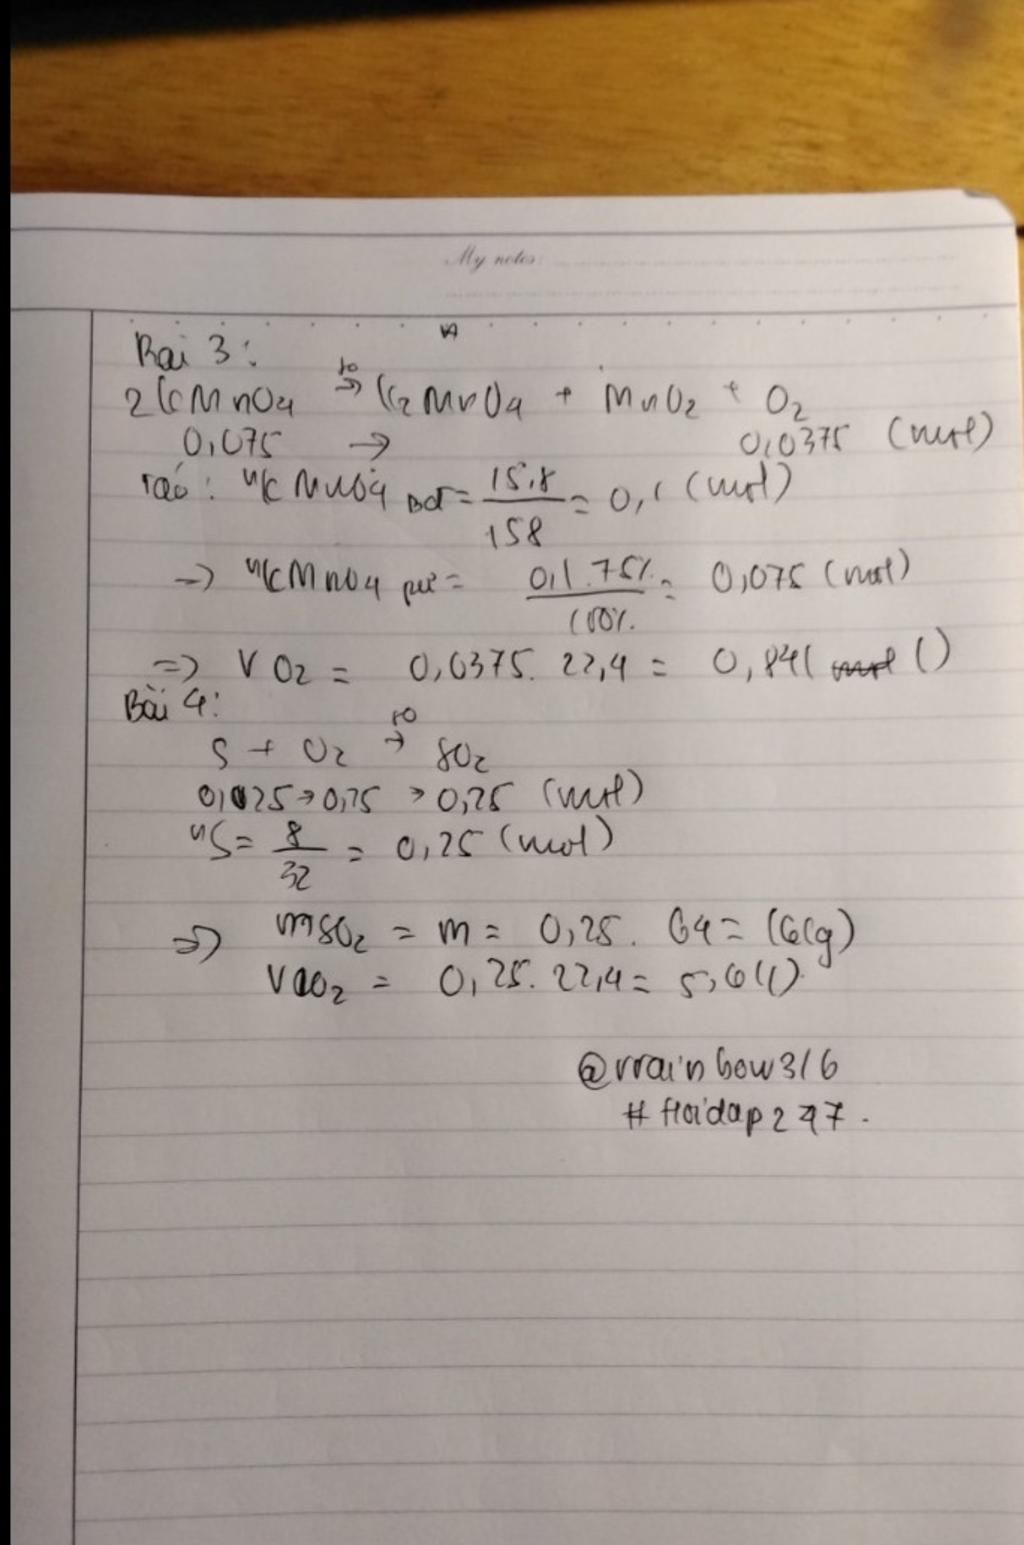 My notes:
Bài 3:
2KMnO4 t° → K2MnO4 + MnO2 + O2
0,075 → 0,0375 (mol)
Ta có: nKMnO4 BĐ = 15,8/158 = 0,1 (mol)
=> nKMnO4 pư = 0,1.75%/100% = 0,075 (mol)
=> VO2 = 0,0375. 22,4 = 0,84 (l)
Bài 4:
S + O2 t° → SO2
0,25 → 0,25 → 0,25 (mol)
nS = 8/32 = 0,25 (mol)
=> mSO2 = m = 0,25. 64 = 16 (g)
VO2 = 0,25. 22,4 = 5,6 (l)
@rrainbow316
#Hoidap247.